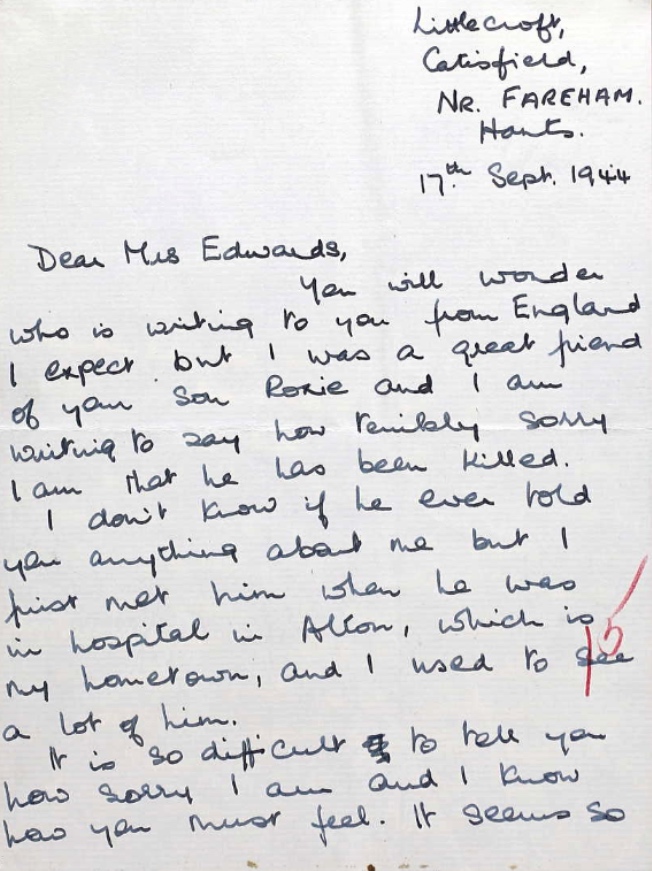 Littlecroft,
Catisfield,
NR. FAREHAM.
Hants.
17th Sept. 1944
Dear Mrs Edwards,
You will wonder
who is writing to you from England
I expect but I was a great friend
of your son Roxie and I am
writing to say how terribly sorry
I am that he has been killed.
I don't know if he ever told
you anything about me but I
first met him when he was
in hospital in Alton, which is
my hometown, and I used to see
a lot of him.
It is so difficult to tell you
how sorry I am and I know
how you must feel. It seems so
15